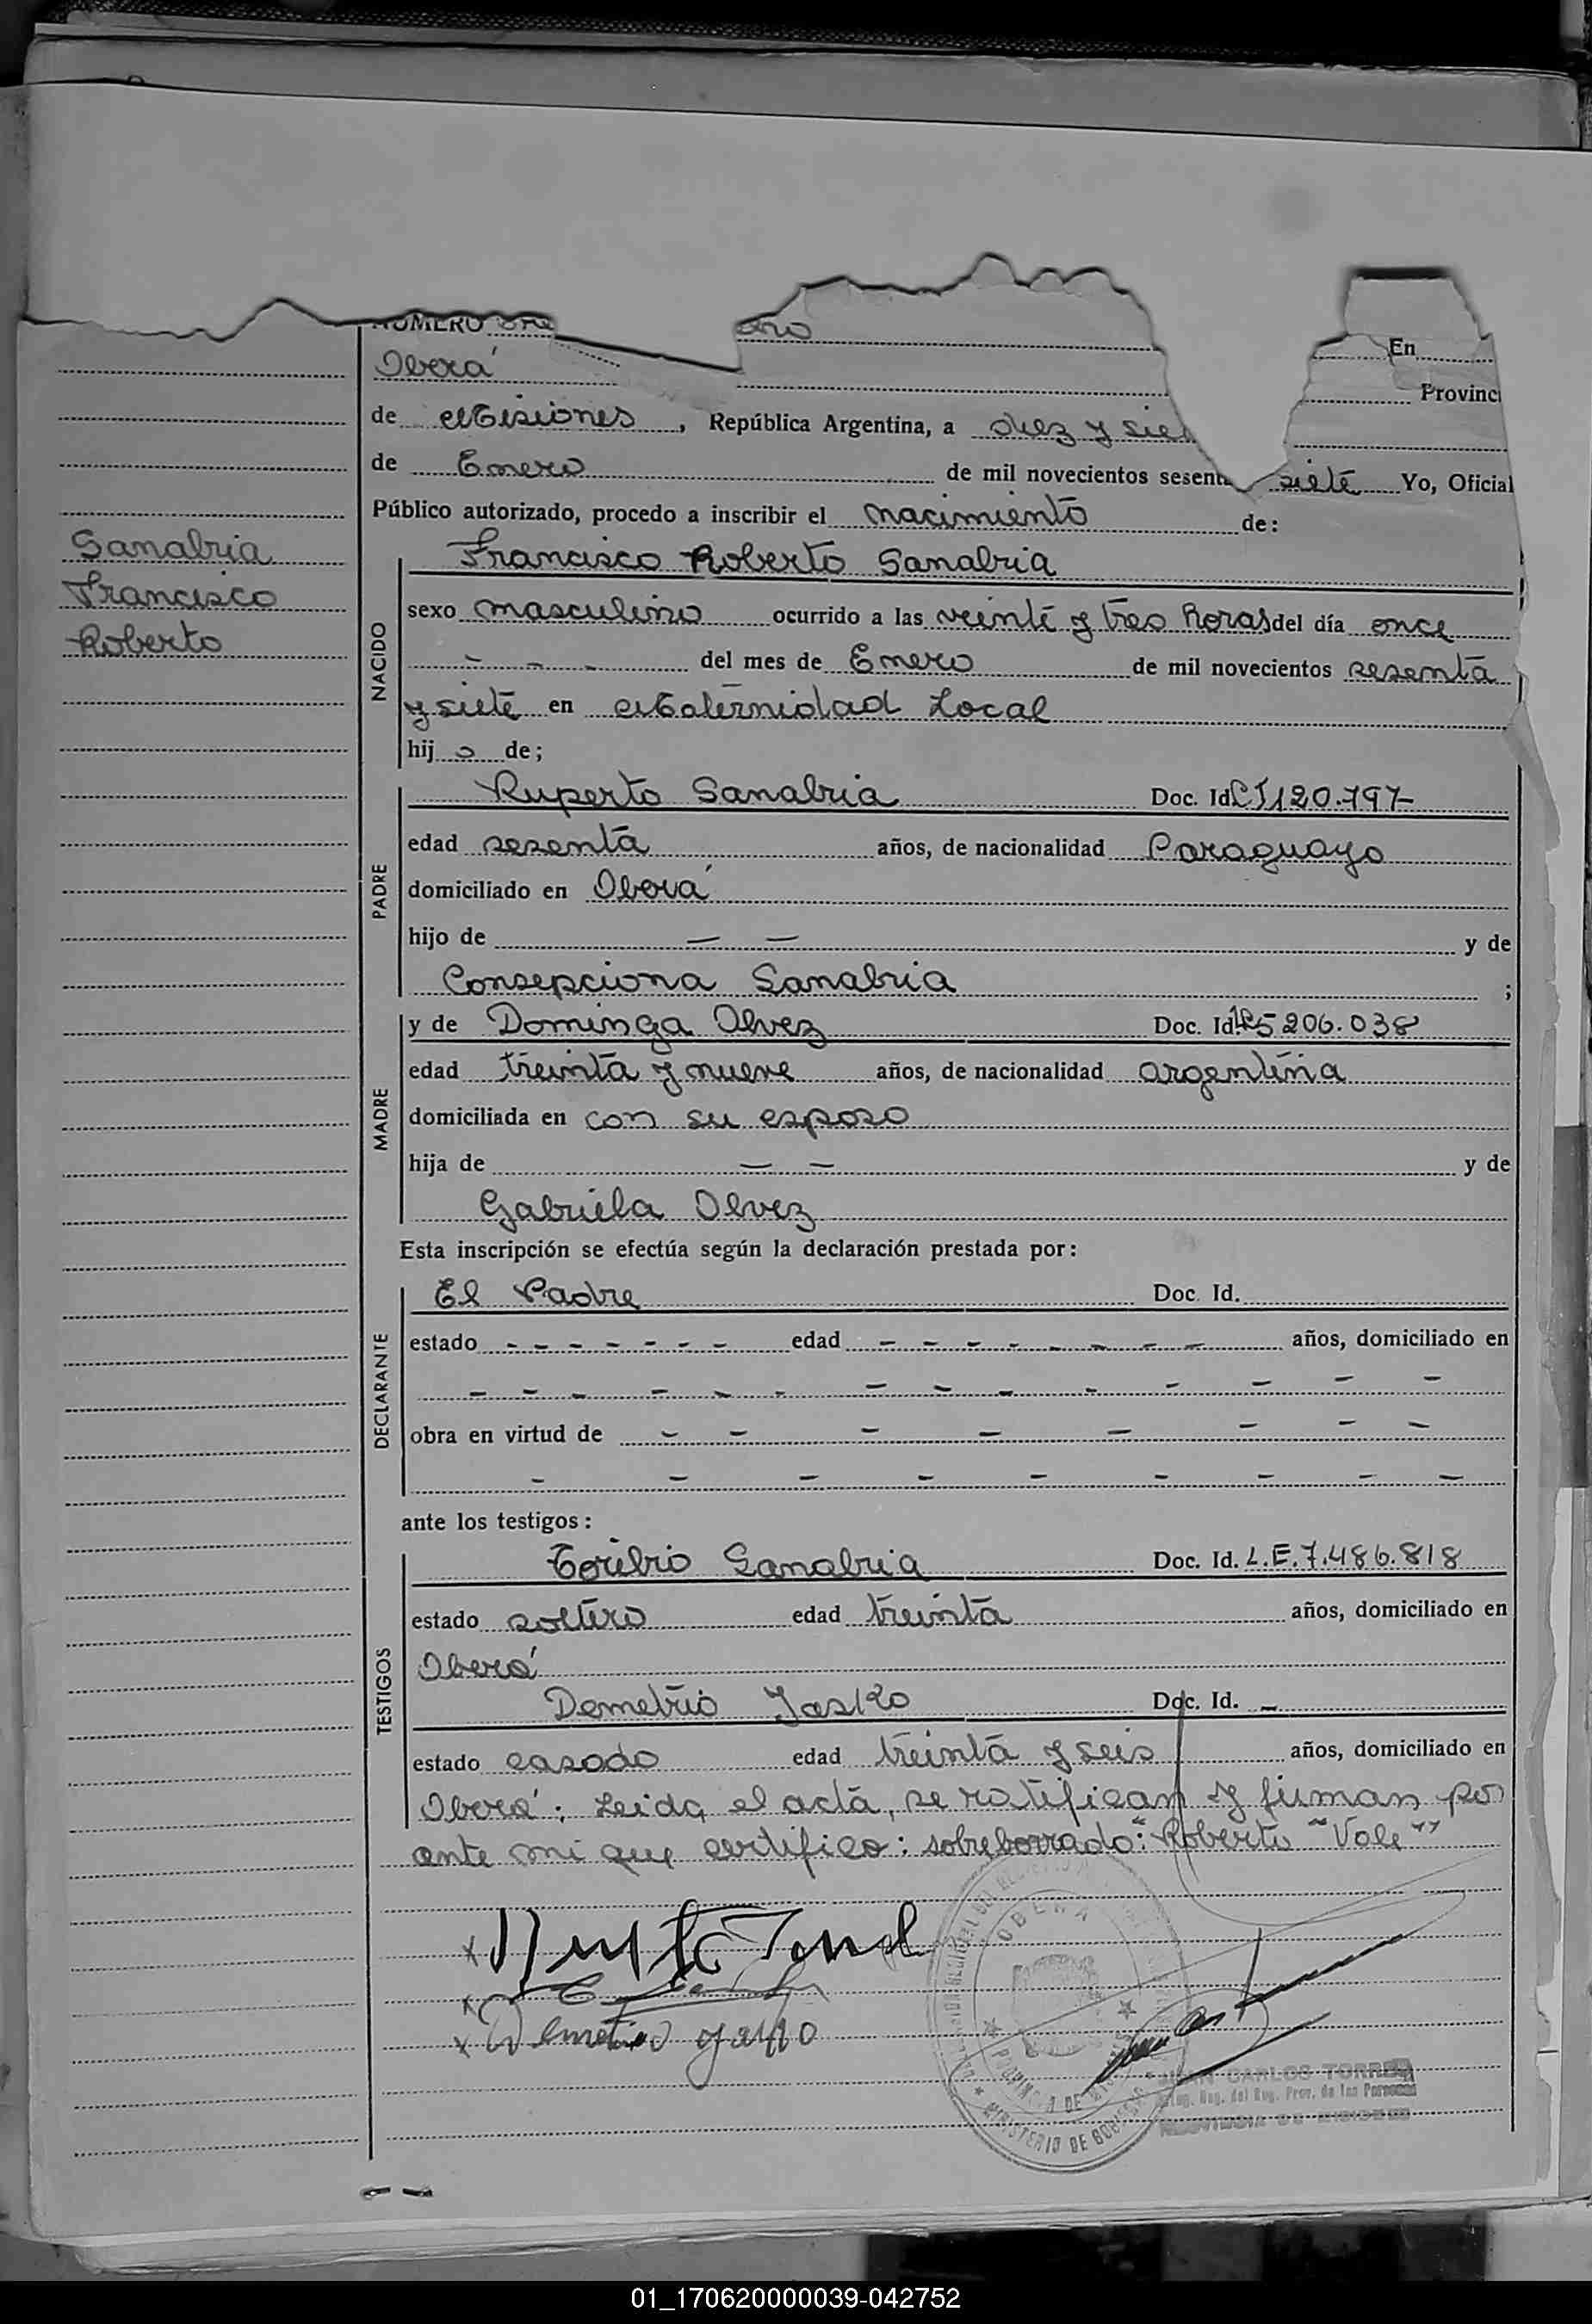 NUMERO
Oberá En
Provinc
de Misiones, República Argentina, a diez y sie
de Enero de mil novecientos sesent siete Yo, Oficial
Público autorizado, procedo a inscribir el nacimiento de:
Sanabria
Francisco
Roberto
Francisco Roberto Sanabria
NACIDO
sexo masculino ocurrido a las veinte y tres horas del día once
- - - del mes de Enero de mil novecientos sesenta
y siete en Maternidad Local
hijo de;
PADRE
Ruperto Sanabria Doc. Id CI 120.797-
edad sesenta años, de nacionalidad Paraguayo
domiciliado en Oberá
hijo de — — y de
Consepciona Sanabria ;
MADRE
y de Dominga Olvez Doc. Id. 5 206.038
edad treinta y nueve años, de nacionalidad argentina
domiciliada en con su esposo
hija de — — y de
Gabriela Olvez
Esta inscripción se efectúa según la declaración prestada por:
DECLARANTE
El Padre Doc. Id.
estado - - - - - - - edad - - - - - - - - años, domiciliado en
- - - - - - - - - - - - - -
obra en virtud de - - - - - - - -
- - - - - - - - -
ante los testigos:
TESTIGOS
Toribio Sanabria Doc. Id. L.E.7.486.818
estado soltero edad treinta años, domiciliado en
Oberá
Demetrio Jasko Doc. Id. -
estado casado edad treinta y seis años, domiciliado en
Oberá; Leida, el acta, se ratifican y firman por
ante mi que certifico: sobreborrado: "Roberto" Vale""
OBERA
MINISTERIO DE GOBIERNO
JUAN CARLOS TORRES
del Reg. Prov. de las Personas
01_170620000039-042752